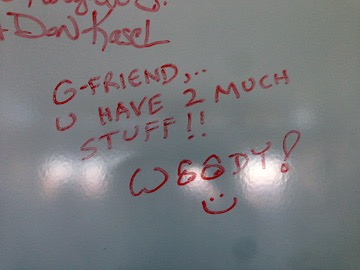 + Don Kasel
G-FRIEND,..
U HAVE 2 MUCH
STUFF!!
WOODY!